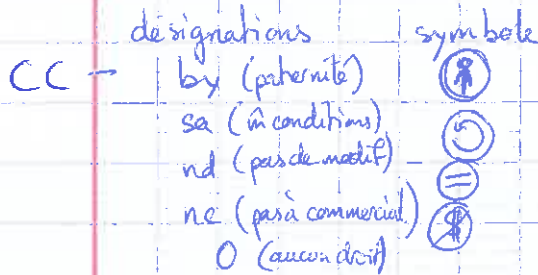 désignations symbole
CC - by (paternité)
sa (m̂ conditions)
nd (pas de modif)
nc (pas à commercial)
0 (aucun droit)